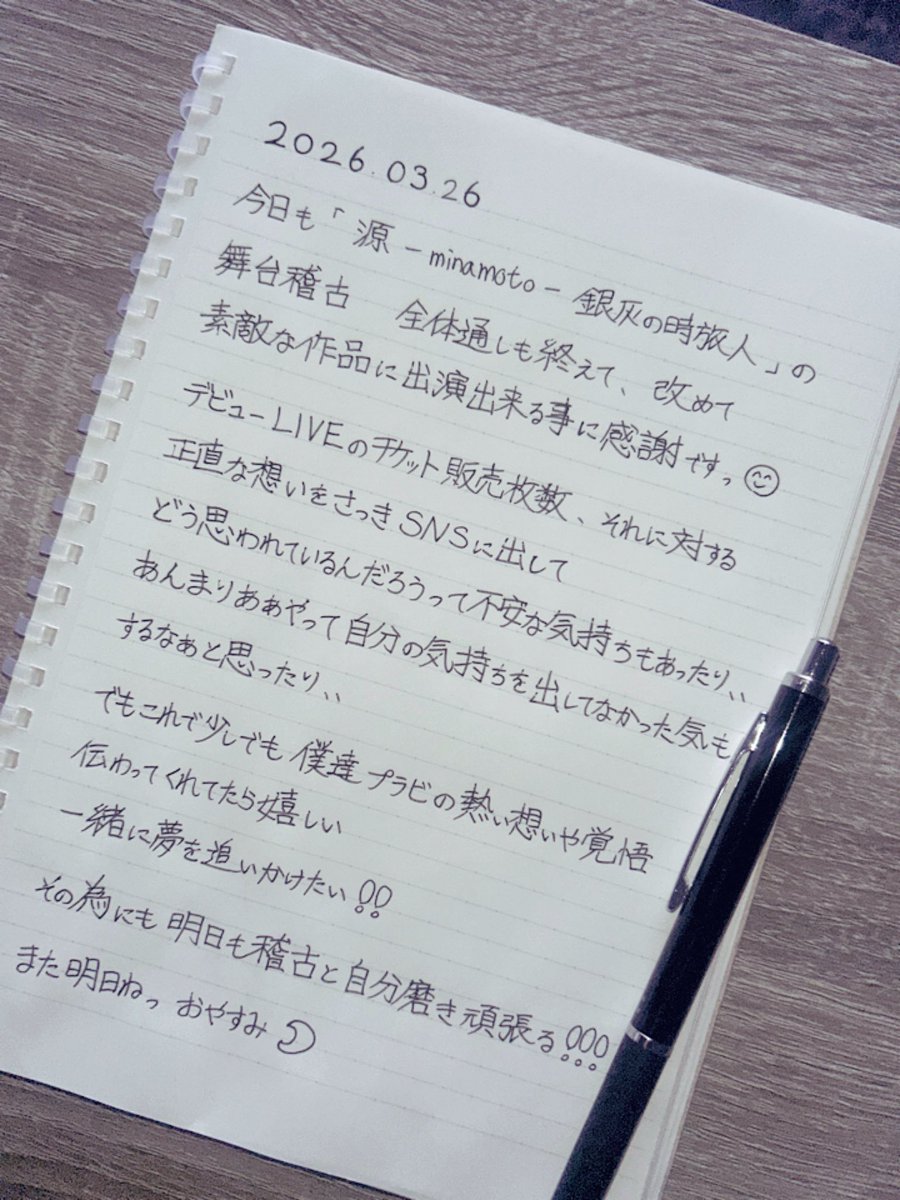 2026.03.26
今日も「源 -minamoto- 銀灰の時旅人」の
舞台稽古 全体通しも終えて、改めて
素敵な作品に出演出来る事に感謝ですっ
デビューLIVEのチケット販売枚数、それに対する
正直な想いをさっきSNSに出して
どう思われているんだろうって不安な気持ちもあったり、、
あんまりあぁやって自分の気持ちを出してなかった気も
するなぁと思ったり、、
でもこれで少しでも僕達プラビの熱い想いや覚悟
伝わってくれてたら嬉しい
一緒に夢を追いかけたい!!
その為にも明日も稽古と自分磨き頑張る!!!
また明日ねっ おやすみ